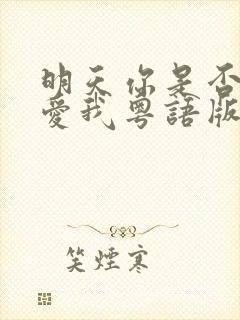 明天你是否
愛我粵語版
笑煙寒